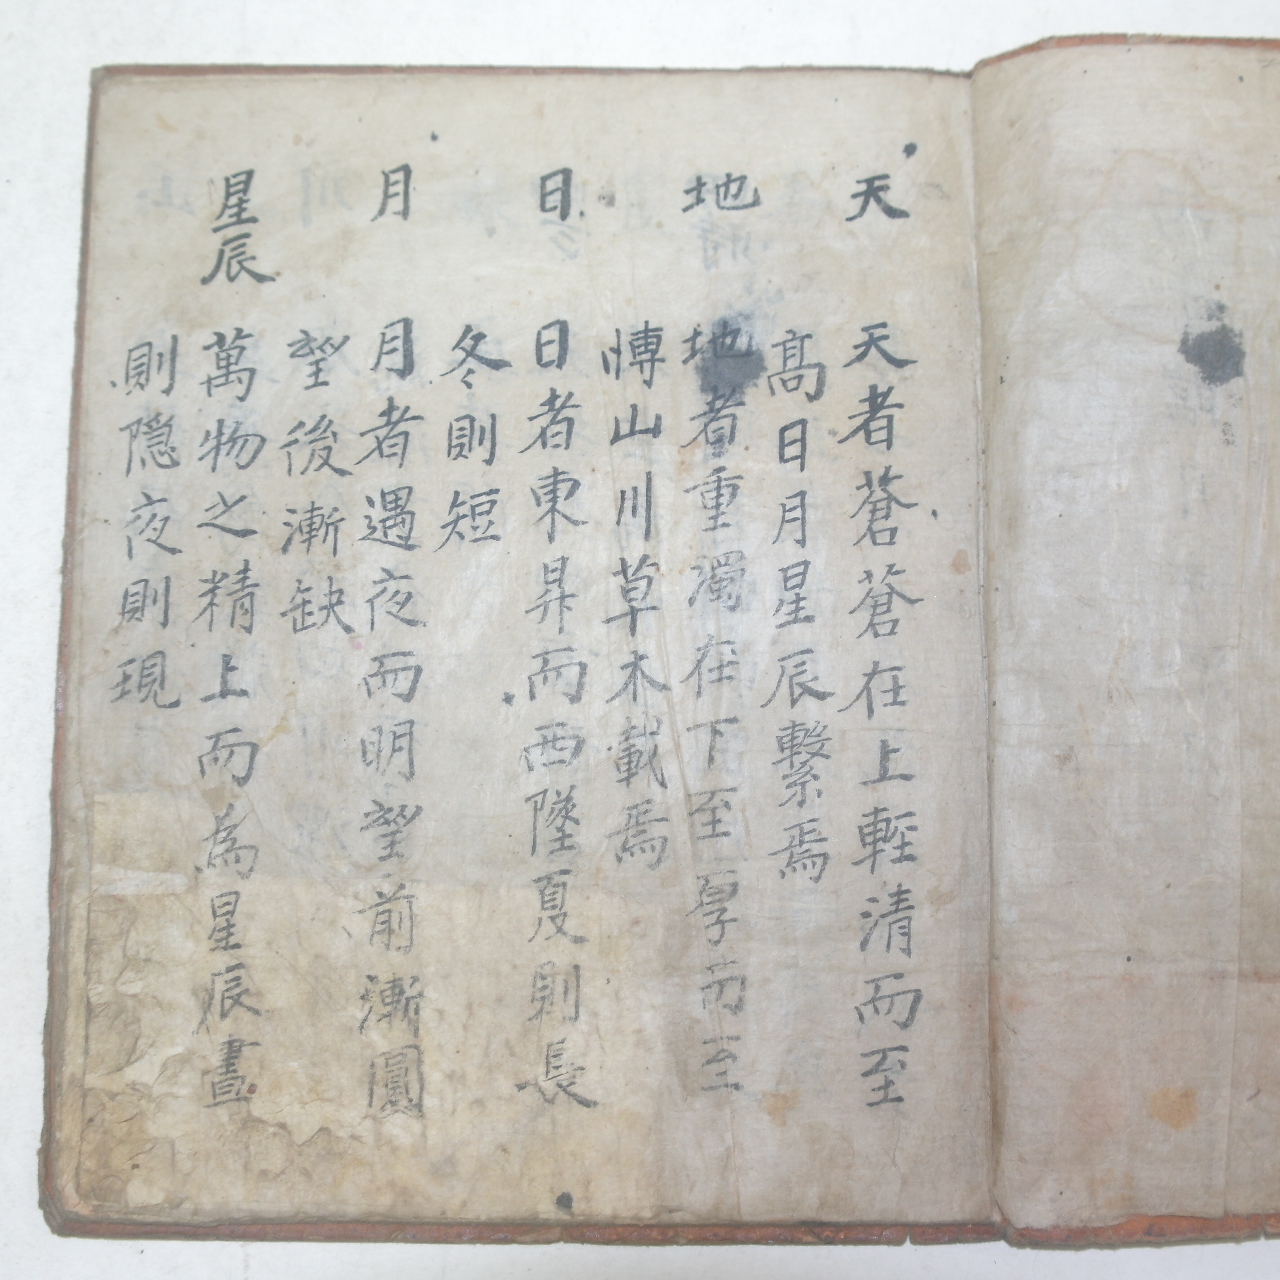 天 天者蒼蒼在上輕清而至
高日月星辰繫焉
地 地者重濁在下至厚而至
愽山川草木載焉
日 日者東昇而西墜夏則長
冬則短
月 月者遇夜而明望前漸圓
望後漸缺
星辰 萬物之精上而為星辰晝
則隠夜則現